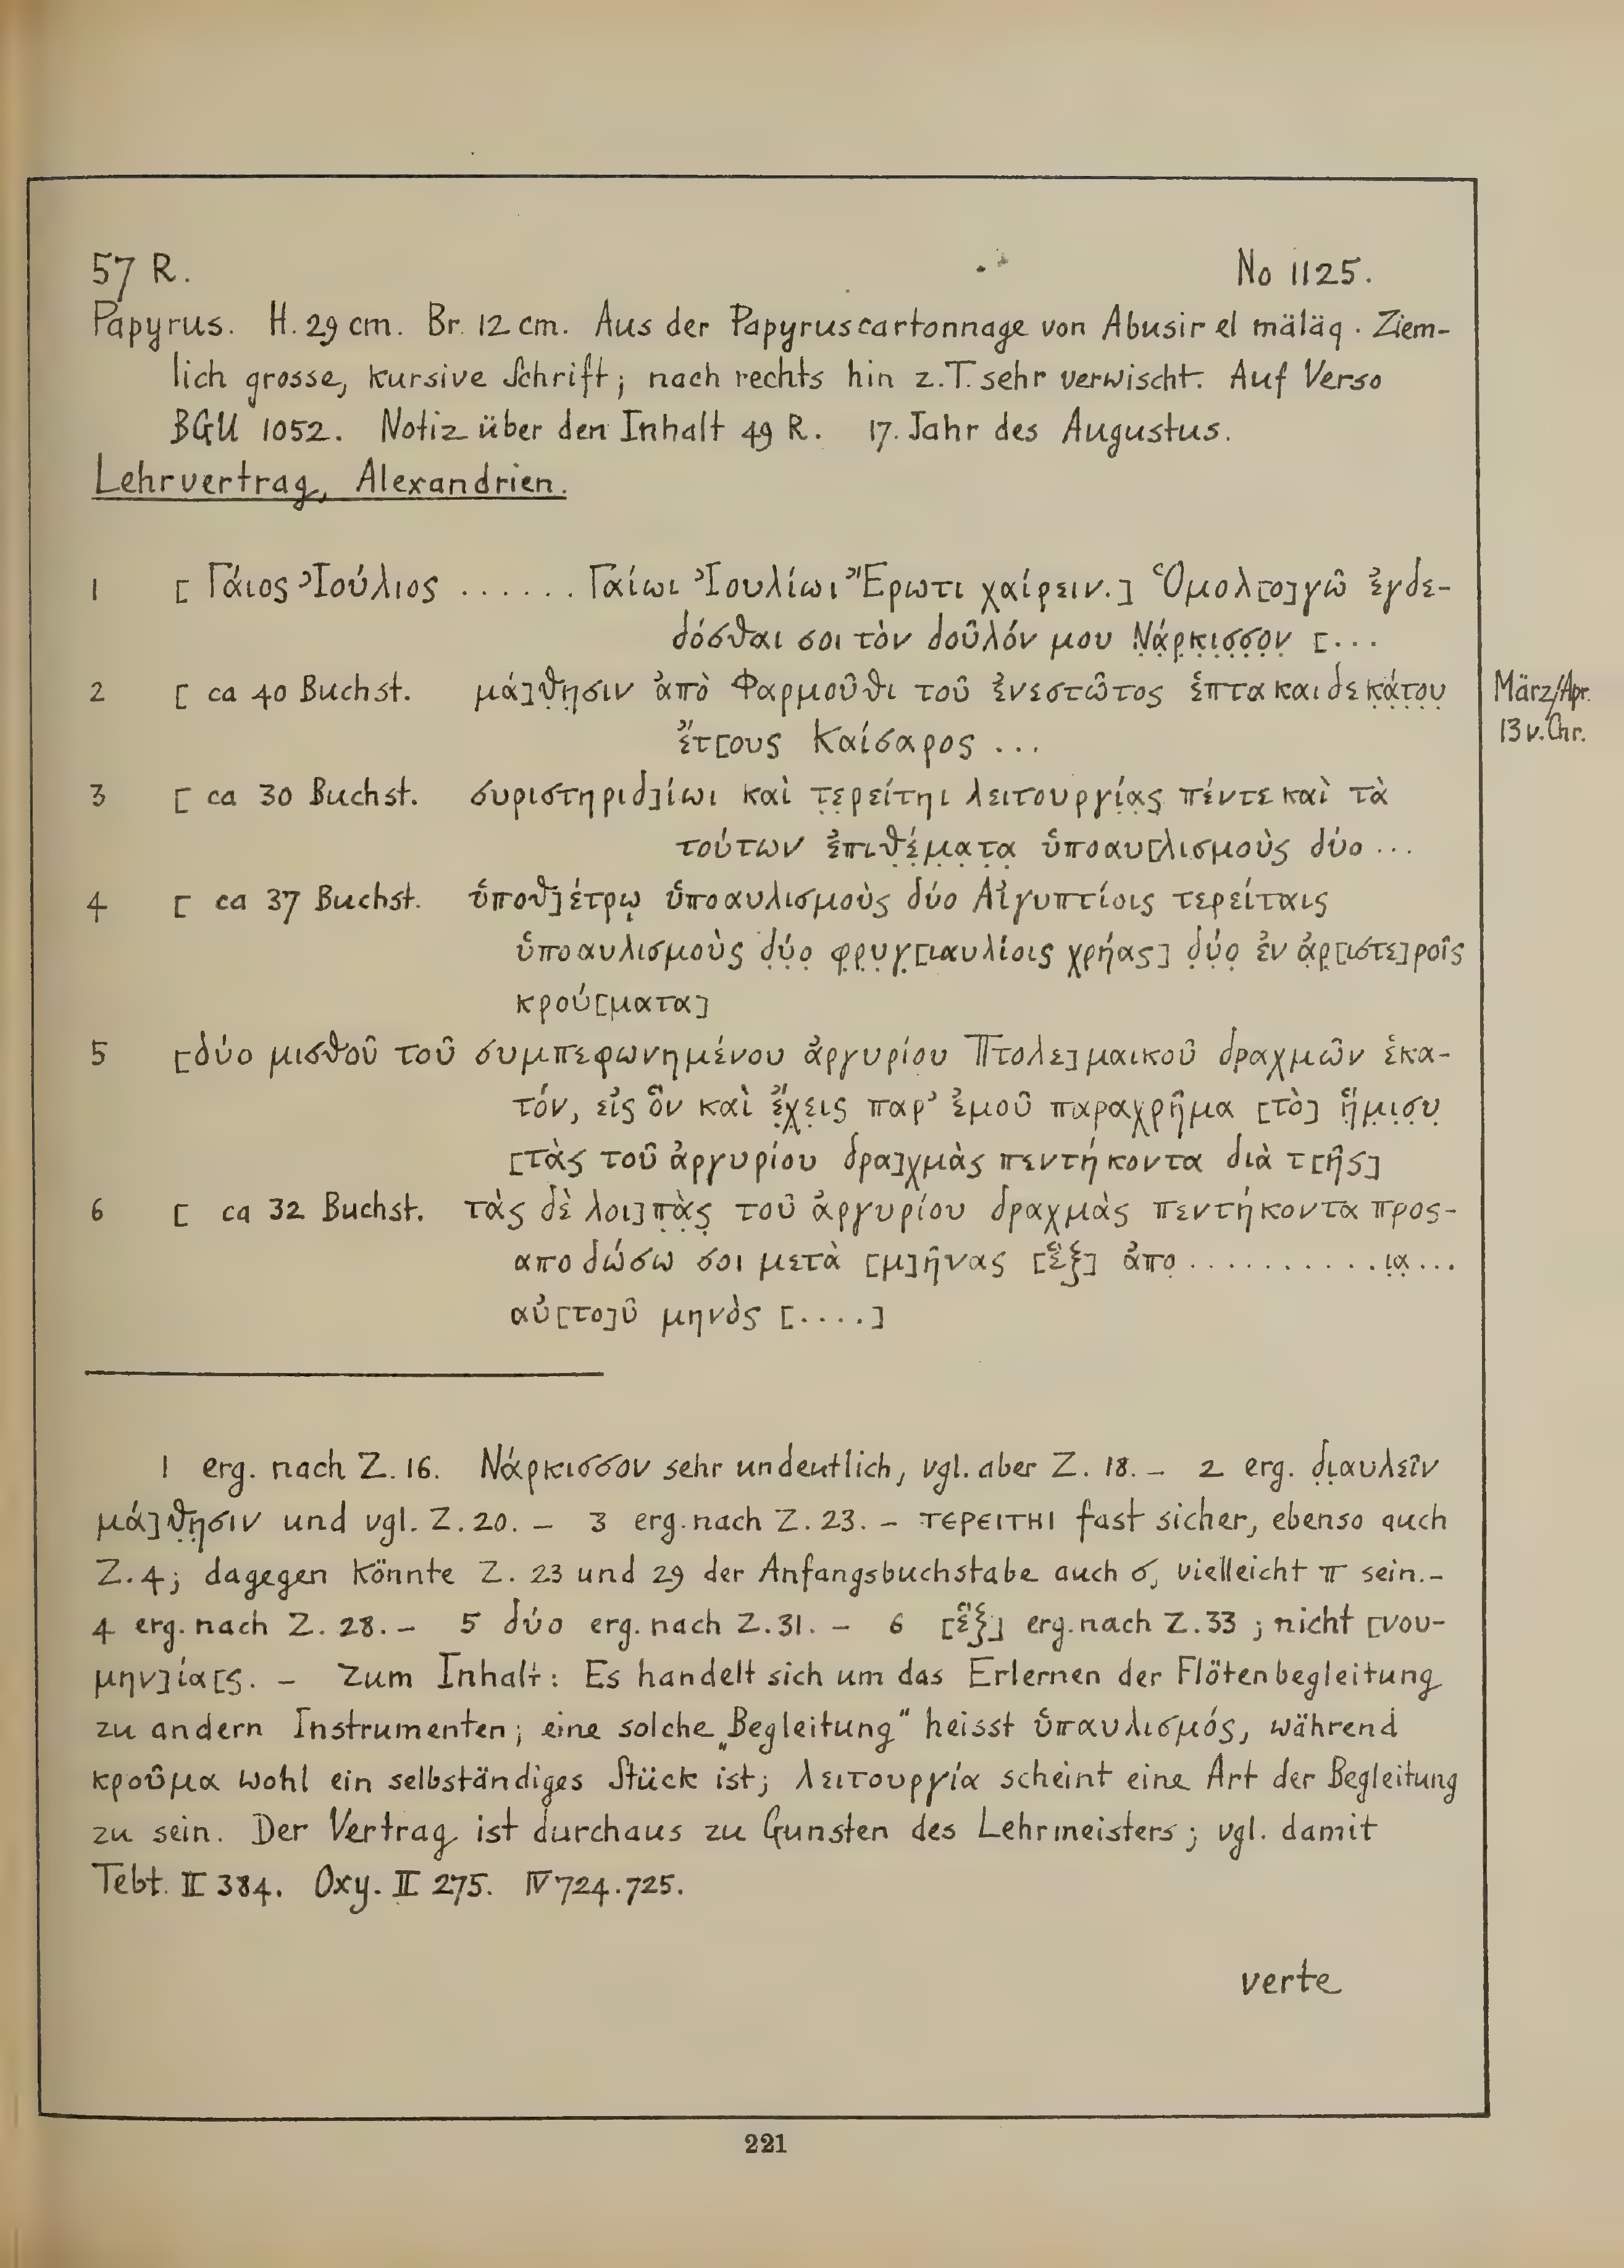 57 R. No 1125.
Papyrus. H. 29 cm. Br. 12 cm. Aus der Papyruscartonnage von Abusir el mäläq. Ziem-
lich grosse, kursive Schrift; nach rechts hin z.T. sehr verwischt. Auf Verso
BGU 1052. Notiz über den Inhalt 49 R. 17. Jahr des Augustus.
Lehrvertrag, Alexandrien.
1 [Γάιος Ἰούλιος ...... Γαίωι Ἰουλίωι Ἔρωτι χαίρειν.] Ὁμολ[ο]γῶ ἐγδε-
δόσθαι σοι τὸν δοῦλόν μου Ν̣ά̣ρ̣κ̣ι̣σ̣σ̣ο̣ν̣ [...
2 [ca 40 Buchst. μά]θ̣η̣σιν ἀπὸ Φαρμοῦθι τοῦ ἐνεστῶτος ἑπτακαιδεκ̣ά̣τ̣ο̣υ̣ März/Apr.
ἔτ[ους Καίσαρος ... 13 v. Chr.
3 [ca 30 Buchst. συριστηριδ]ίωι καὶ τ̣ε̣ρείτηι λειτουργί̣α̣ς̣ πέντε καὶ τὰ
τούτων ἐπιθ̣έ̣μ̣α̣τ̣α̣ ὑποαυ[λισμοὺς δύο ...
4 [ca 37 Buchst. ὑποθ]έτρῳ ὑποαυλισμοὺς δύο Αἰγυπτίοις τερείταις
ὑποαυλισμοὺς δ̣ύ̣ο̣ φ̣ρ̣υ̣γ̣[ιαυλίοις χρήας] δ̣ύ̣ο̣ ἐν ἀ̣ρ̣[ιστε]ροῖς
κρού[ματα]
5 [δύο μισθοῦ τοῦ συμπεφωνημένου ἀργυρίου Πτολε]μαικοῦ δραχμῶν ἑκα-
τόν, εἰς ὃν καὶ ἔ̣χ̣εις παρ' ἐμοῦ παραχρῆμα [τὸ] ἥ̣μ̣ι̣σ̣υ̣
[τὰς τοῦ ἀργυρίου δρα]χμὰς πεντήκοντα διὰ τ[ῆς]
6 [ca 32 Buchst. τὰς δὲ λοι]π̣ὰ̣ς̣ τοῦ ἀργυρίου δραχμὰς πεντήκοντα προς-
αποδώσω σοι μετὰ [μ]ῆνας [ἓξ] ἀπο̣...........ι̣α̣...
αὐ[το]ῦ μηνὸς [....]
1 erg. nach Z. 16. Νάρκισσον sehr undeutlich, vgl. aber Z. 18. – 2 erg. δ̣ι̣αυλεῖν
μά]θ̣η̣σιν und vgl. Z. 20. – 3 erg. nach Z. 23. – ΤΕΡΕΙΤΗΙ fast sicher, ebenso auch
Z. 4; dagegen könnte Z. 23 und 29 der Anfangsbuchstabe auch σ, vielleicht π sein. –
4 erg. nach Z. 28. – 5 δύο erg. nach Z. 31. – 6 [ἓξ] erg. nach Z. 33; nicht [νου-
μην]ία[ς. – Zum Inhalt: Es handelt sich um das Erlernen der Flötenbegleitung
zu andern Instrumenten; eine solche „Begleitung" heisst ὑπαυλισμός, während
κροῦμα wohl ein selbständiges Stück ist; λειτουργία scheint eine Art der Begleitung
zu sein. Der Vertrag ist durchaus zu Gunsten des Lehrmeisters; vgl. damit
Tebt. II 384. Oxy. II 275. IV 724. 725.
verte
221